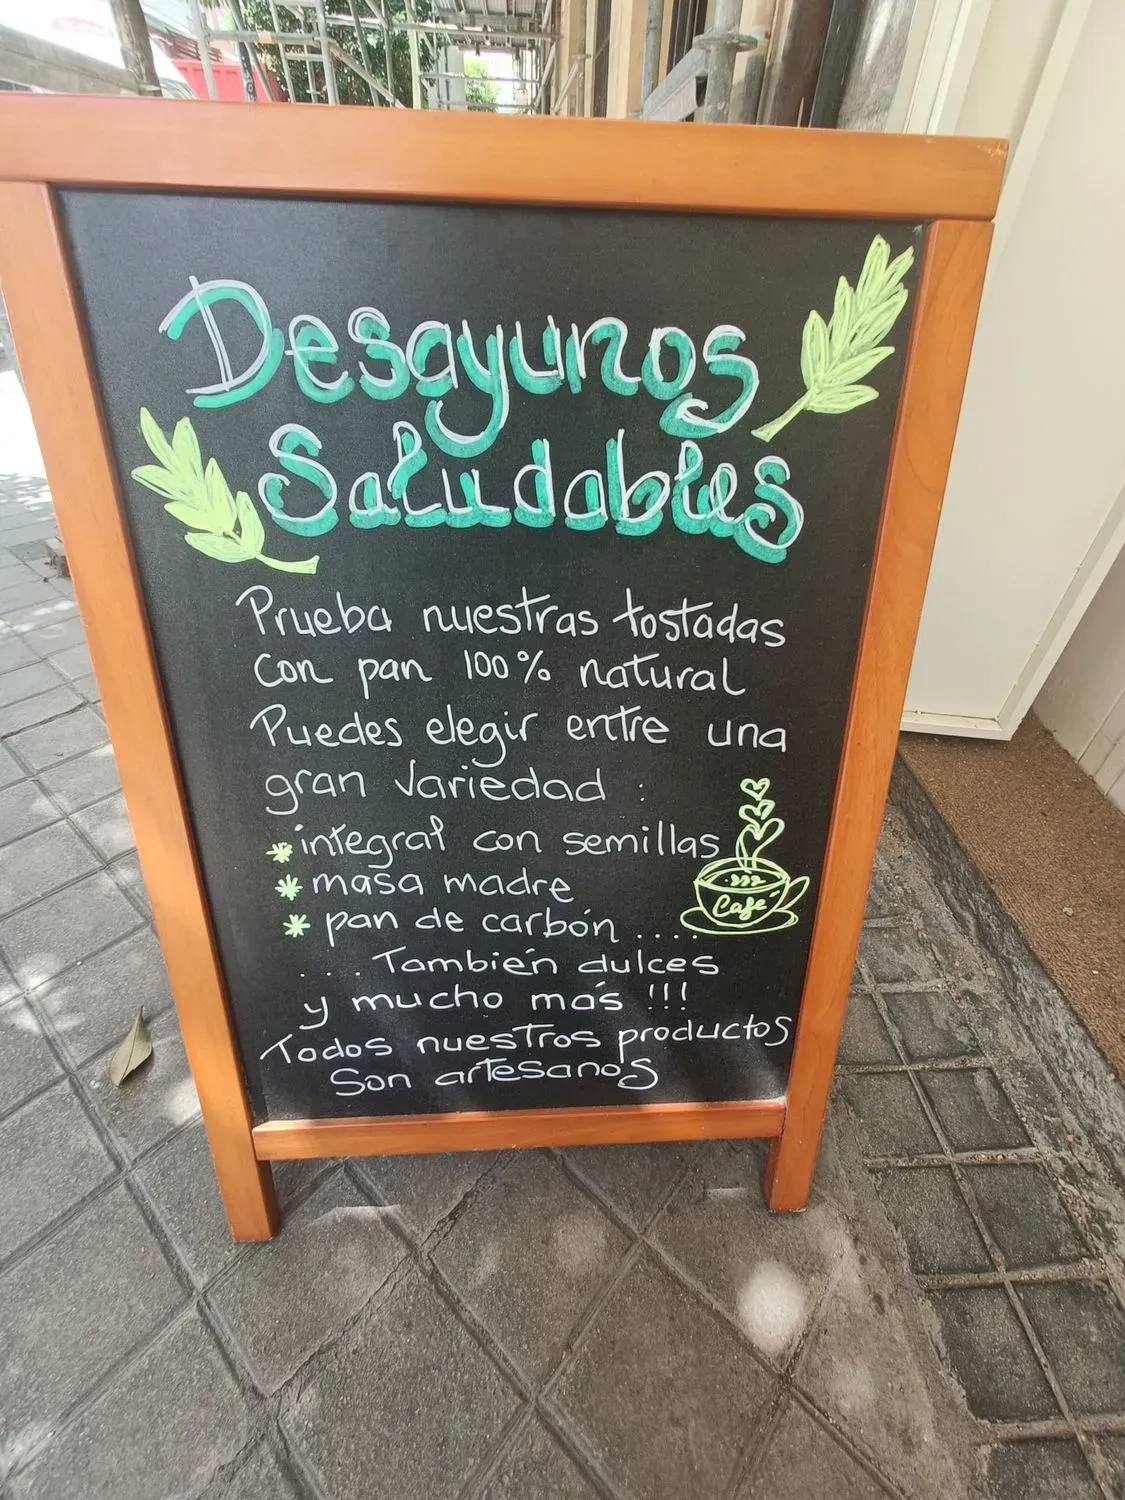 Desayunos
Saludables
Prueba nuestras tostadas
con pan 100% natural
Puedes elegir entre una
gran variedad :
* integral con semillas
* masa madre
* pan de carbón ....
Café
.... También dulces
y mucho más !!!
Todos nuestros productos
Son artesanos